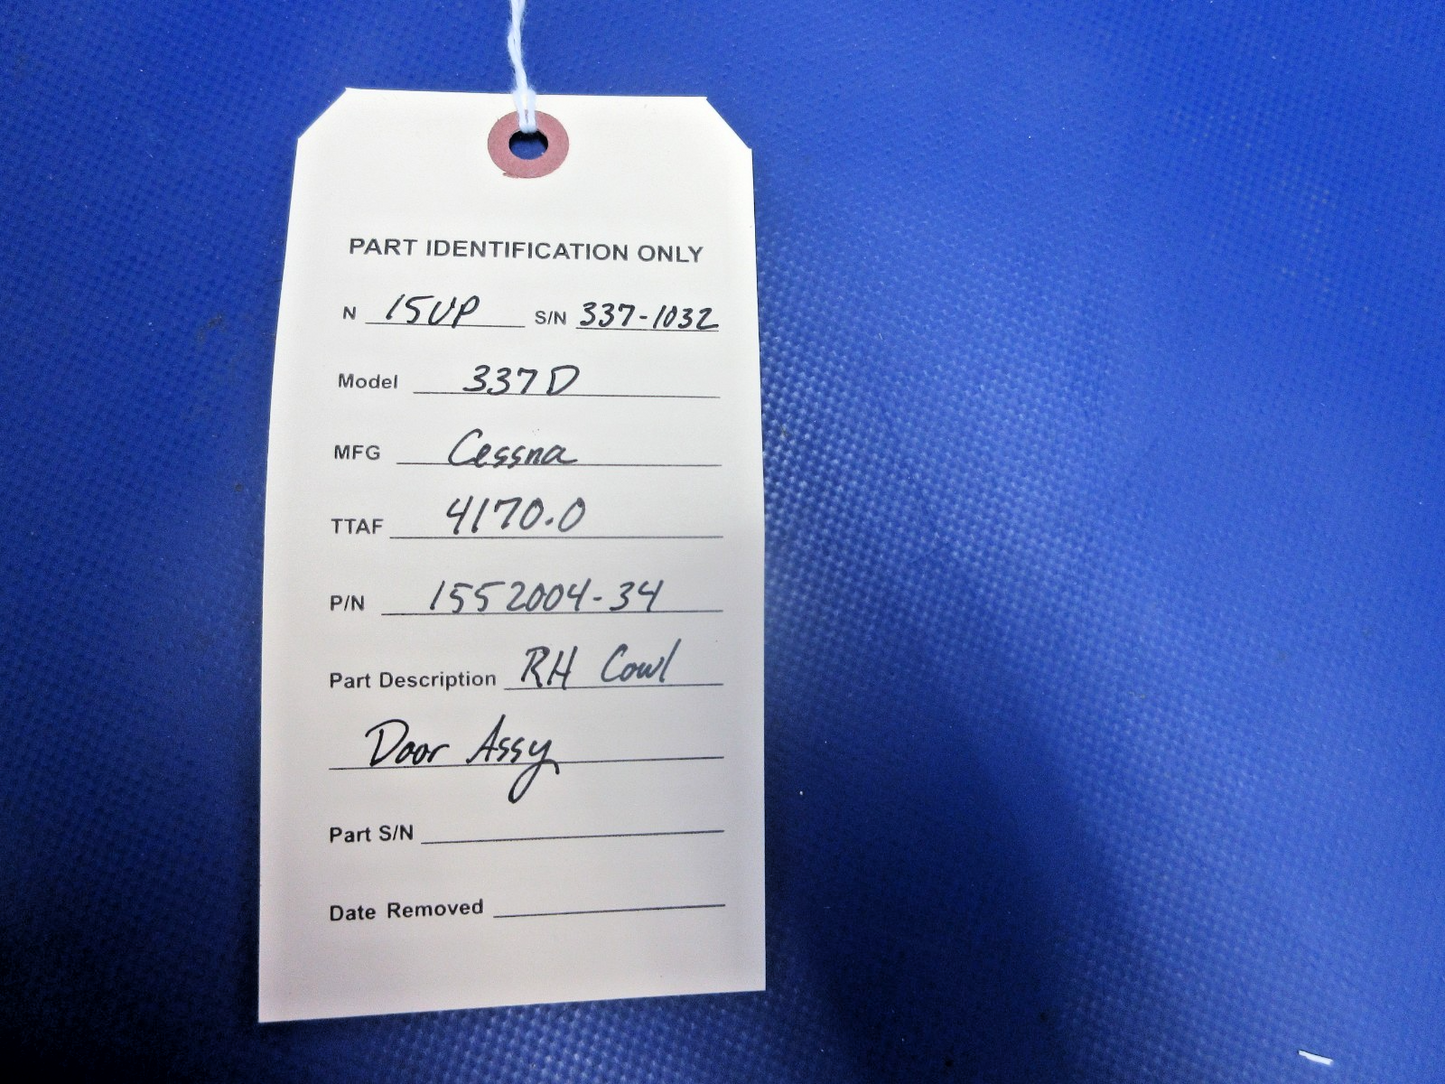 PART IDENTIFICATION ONLY
N 15UP S/N 337-1032
Model 337D
MFG Cessna
TTAF 4170.0
P/N 1552004-34
Part Description RH Cowl
Door Assy
Part S/N
Date Removed